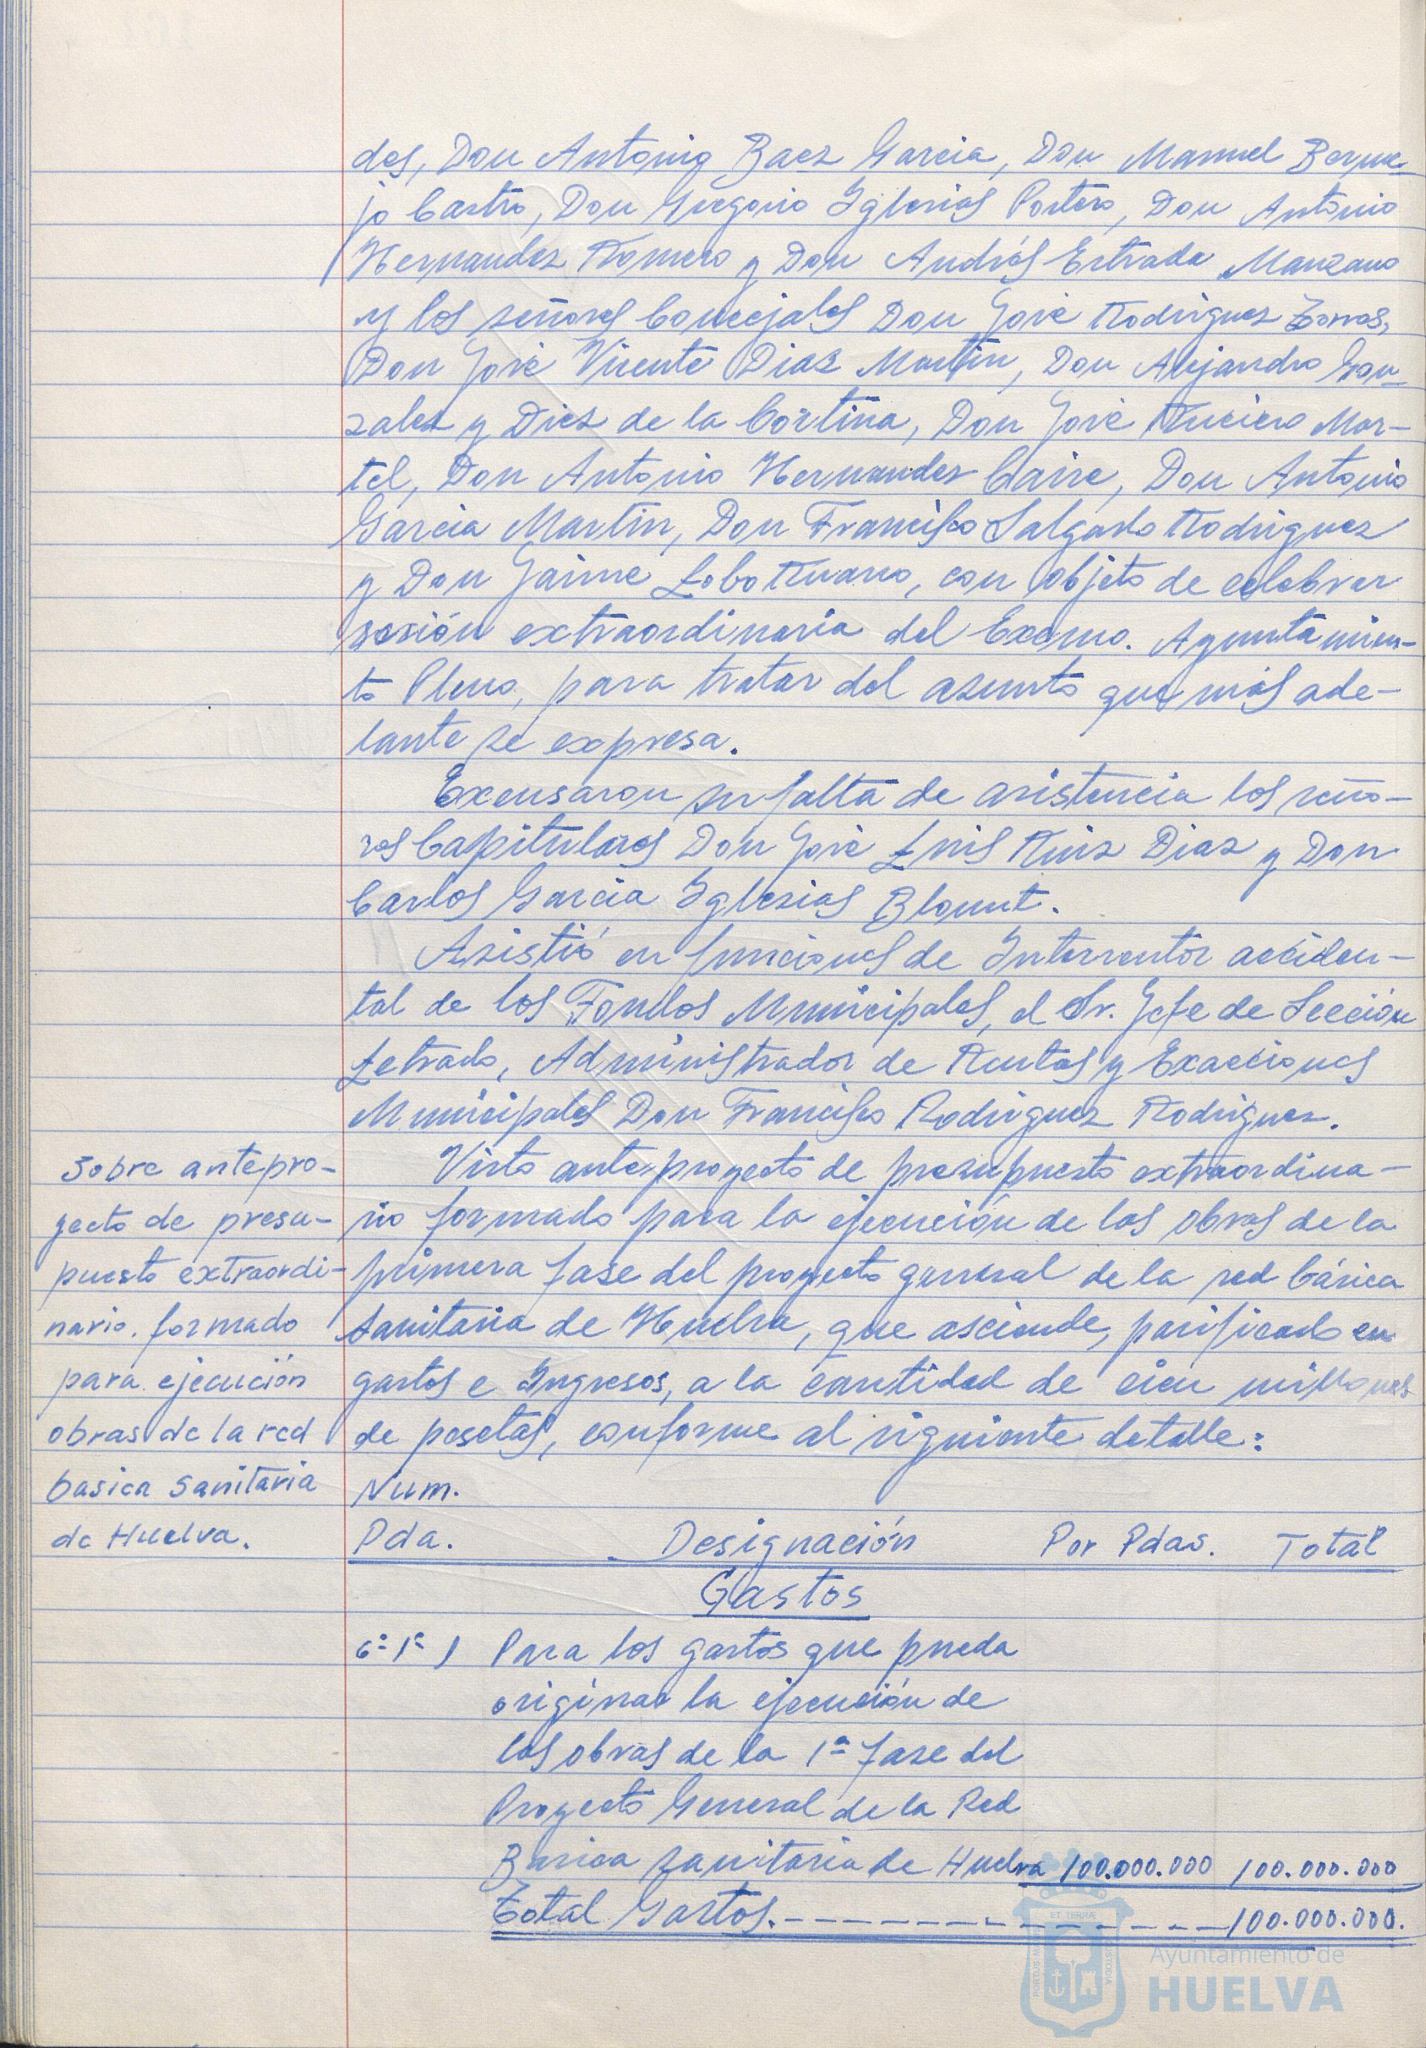 des, Don Antonio Baez Garcia, Don Manuel Berme-
jo Castro, Don Gregorio Iglesias Portero, Don Antonio
Hernandez Romero y Don Andrés Estrada Manzano
y los señores Concejales Don José Rodriguez Torres,
Don José Vicente Diaz Martin, Don Alejandro Gon-
zales y Diez de la Cortina, Don José Ruciero Mar-
tel, Don Antonio Hernandez Caire, Don Antonio
Garcia Martin, Don Francisco Salgado Rodriguez
y Don Jaime Lobo Ruano, con objeto de celebrar
sesión extraordinaria del Excmo. Ayuntamien-
to Pleno, para tratar del asunto que más ade-
lante se expresa.
Excusaron su falta de asistencia los seño-
res Capitulares Don José Luis Ruiz Diaz y Don
Carlos Garcia Iglesias Blount.
Asistió en funciones de Interventor acciden-
tal de los Fondos Municipales, el Sr. Jefe de Sección
Letrado, Administrador de Rentas y Exacciones
Municipales Don Francisco Rodriguez Rodriguez.
Sobre antepro-
yecto de presu-
puesto extraordi-
nario, formado
para ejecución
obras de la red
basica sanitaria
de Huelva.
Visto anteproyecto de presupuesto extraordina-
rio formado para la ejecución de las obras de la
primera fase del proyecto general de la red básica
sanitaria de Huelva, que asciende, parificado en
gastos e Ingresos, a la cantidad de cien millones
de pesetas, conforme al siguiente detalle:
Num.
Pda. Designación Por Pdas. Total
Gastos
6º 1º 1 Para los gastos que pueda
originar la ejecución de
las obras de la 1ª fase del
Proyecto General de la Red
Basica sanitaria de Huelva 100.000.000 100.000.000
Total Gastos.- - - - - - - - - - - - 100.000.000.
Ayuntamiento de
HUELVA